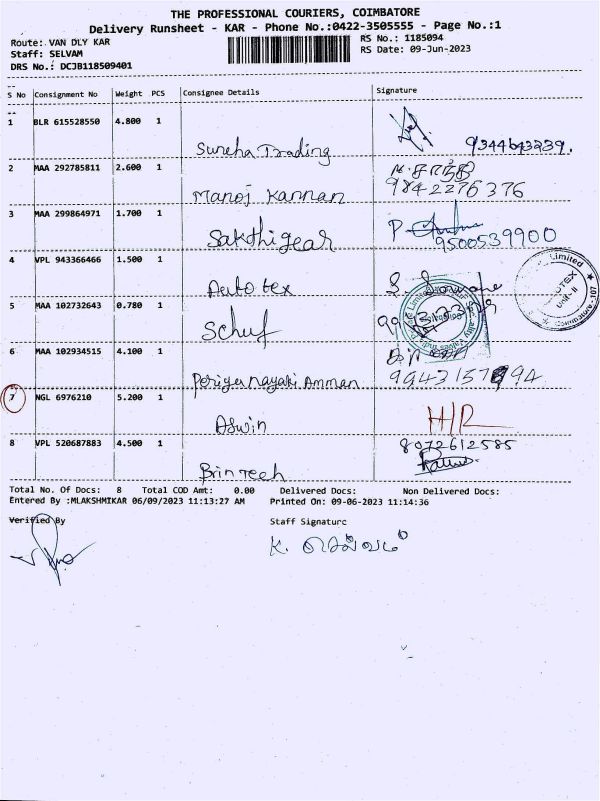 THE PROFESSIONAL COURIERS, COIMBATORE
Delivery Runsheet - KAR - Phone No.:0422-3505555 - Page No.:1
Route: VAN DLY KAR RS No.: 1185094
Staff: SELVAM RS Date: 09-Jun-2023
DRS No.: DCJB118509401
S No Consignment No Weight PCS Consignee Details Signature
1 BLR 615528550 4.800 1
Sureha Trading 9344643239.
2 MAA 292785811 2.600 1
Manoj Kannan 9842276376
3 MAA 299864971 1.700 1
Sakthigear 9500539900
4 VPL 943366466 1.500 1
Auto tex
5 MAA 102732643 0.780 1
Schuf
6 MAA 102934515 4.100 1
Periya nayaki Amman
7 NGL 6976210 5.200 1
Aswin H/R
8 VPL 520687883 4.500 1 8072612585
Brintech
Total No. Of Docs: 8 Total COD Amt: 0.00 Delivered Docs: Non Delivered Docs :
Entered By :MLAKSHMIKAR 06/09/2023 11:13:27 AM Printed On: 09-06-2023 11:14:36
Verified By Staff Signature
K. செல்வம்